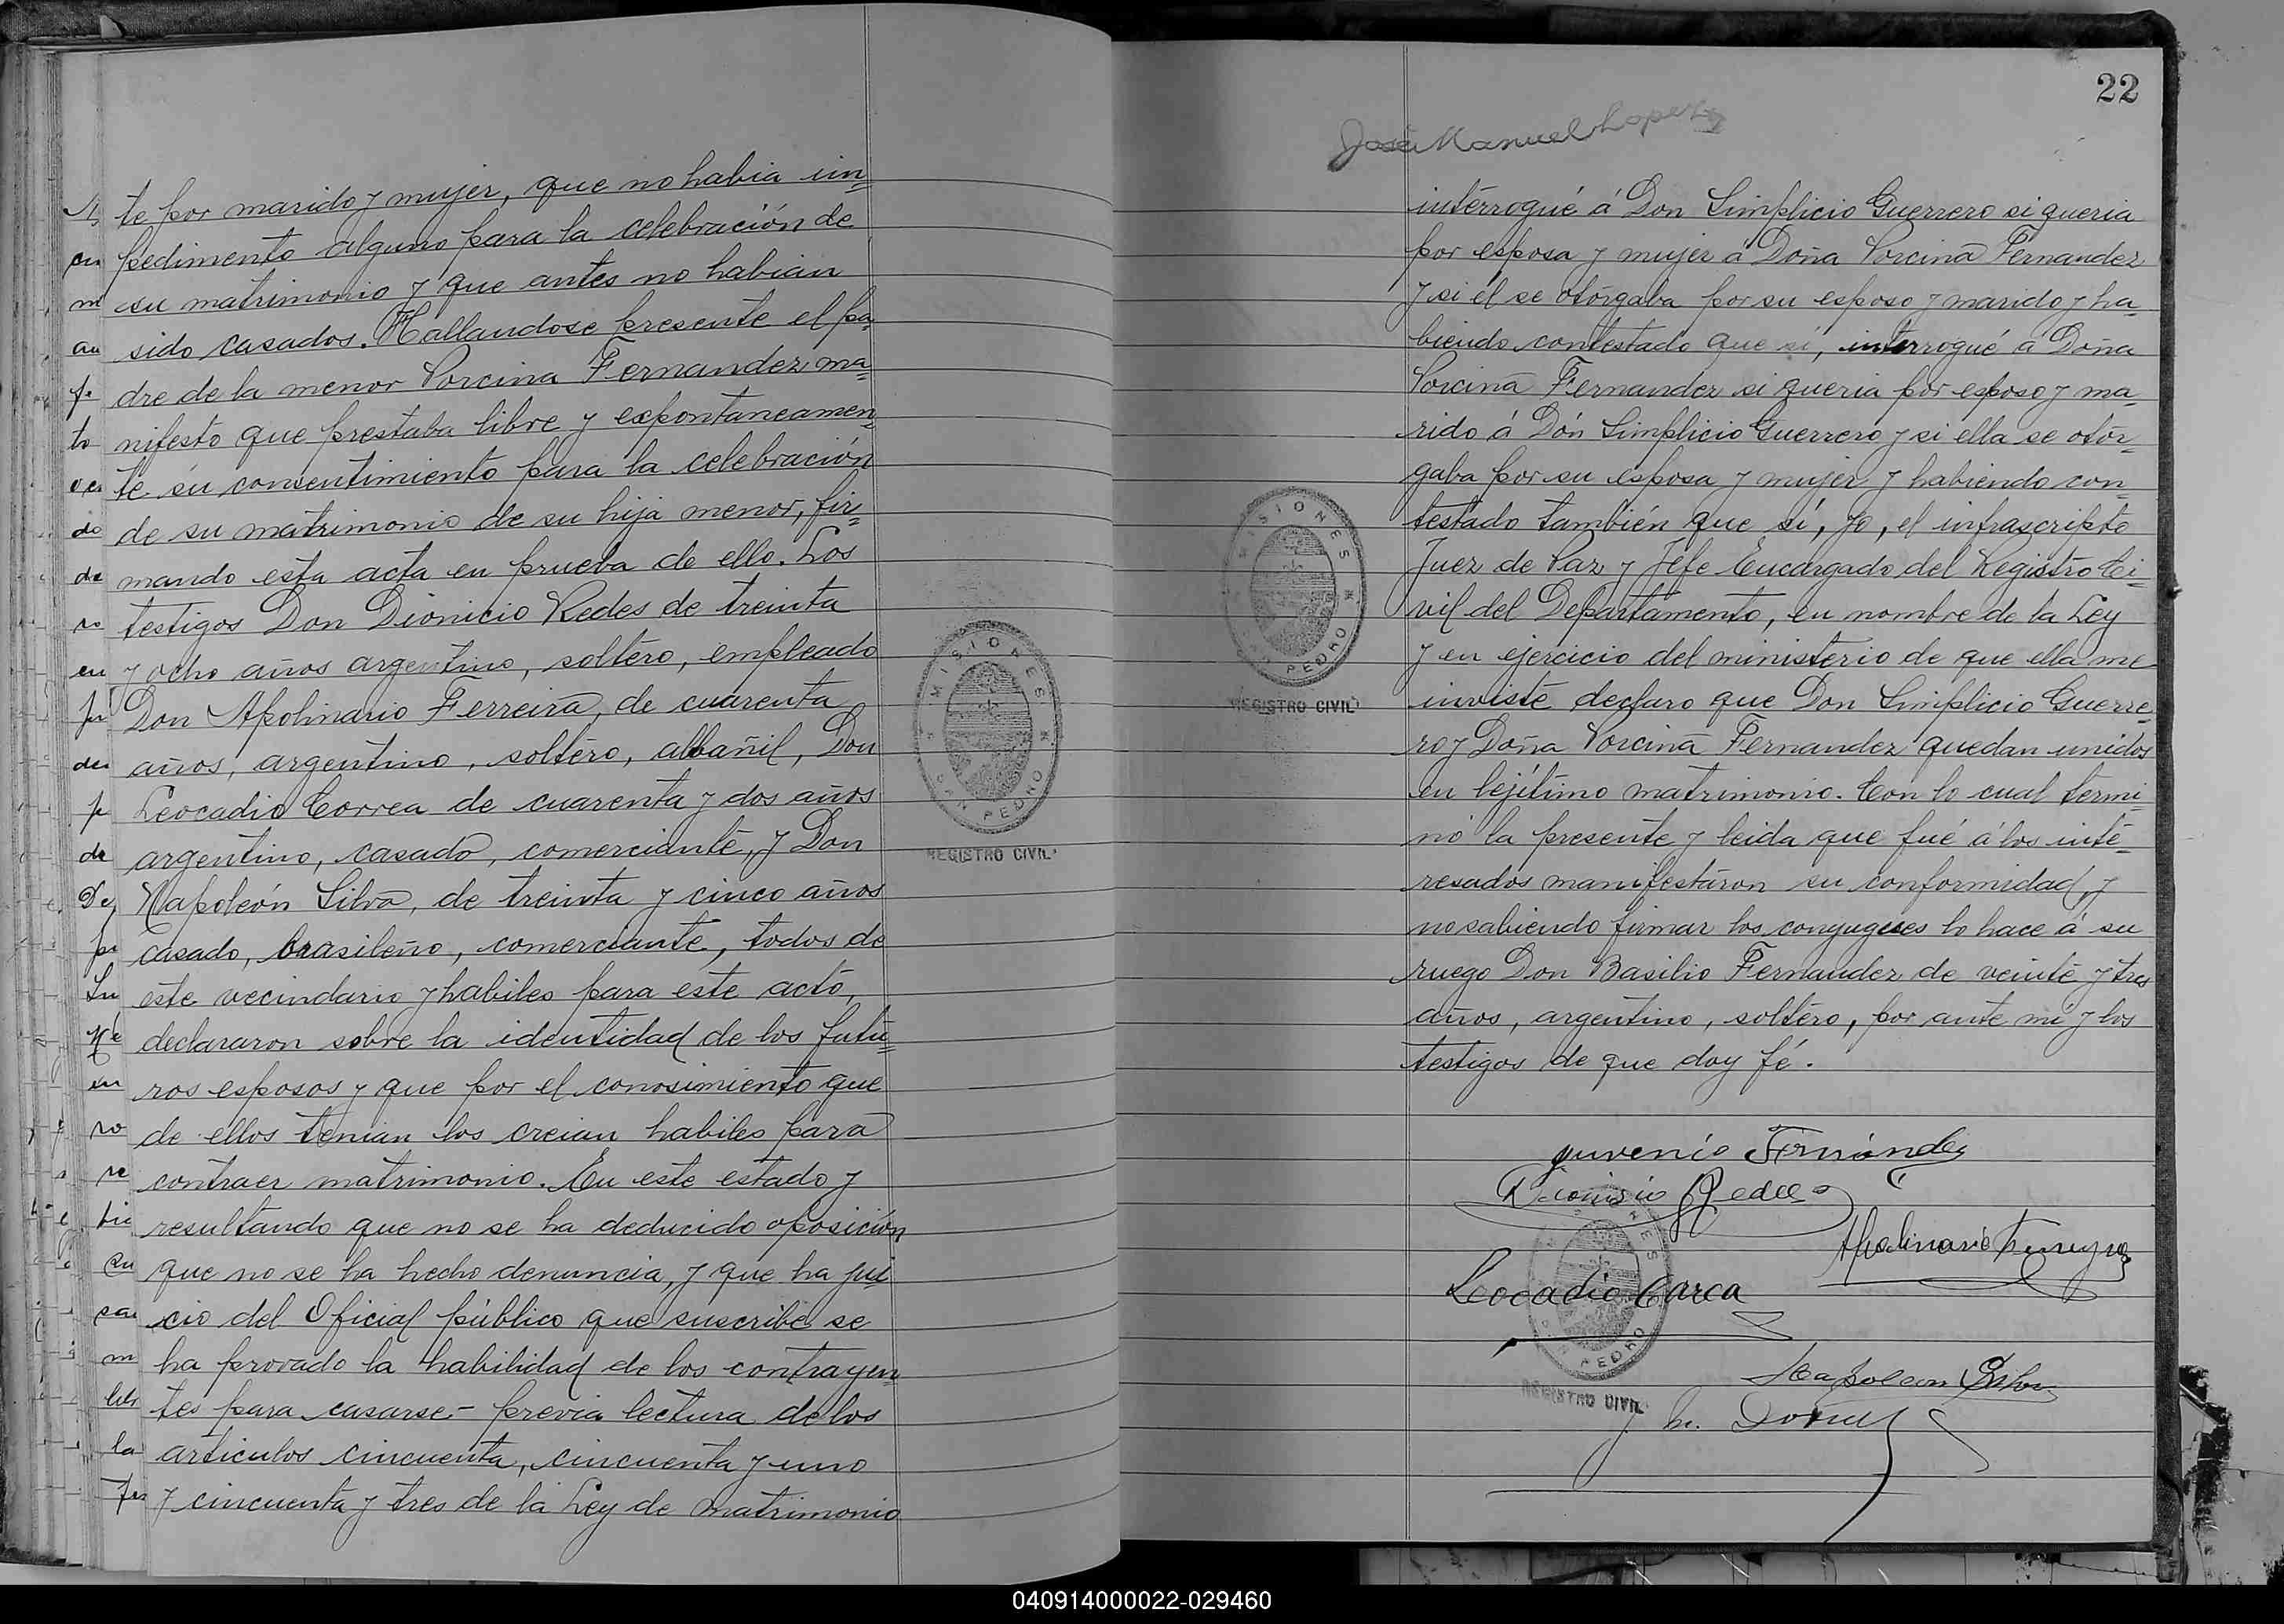 te por marido y mujer, que no habia im=
pedimento alguno para la celebración de
su matrimonio y que antes no habian
sido casados. Hallandose presente el pa=
dre de la menor Porcina Fernandez ma=
nifesto que prestaba libre y expontaneamen=
te su consentimiento para la celebración
de su matrimonio de su hija menor, fir=
mando esta acta en prueba de ello. Los
testigos Don Dionicio Redes de treinta
y ocho años argentino, soltero, empleado
Don Apolinario Ferreira, de cuarenta
años, argentino, soltero, albañil, Don
Leocadio Correa de cuarenta y dos años
argentino, casado, comerciante, y Don
Napoleón Silva, de treinta y cinco años
casado, brasileño, comerciante, todos de
este vecindario y habiles para este acto,
declararon sobre la identidad de los futu=
ros esposos y que por el conosimiento que
de ellos tenian los creian habiles para
contraer matrimonio. En este estado y
resultando que no se ha deducido oposición
que no se ha hecho denuncia, y que ha jui
cio del Oficial público que suscribe se
ha provado la habilidad de los contrayen=
tes para casarse - previa lectura de los
articulos cincuenta, cincuenta y uno
y cincuenta y tres de la Ley de matrimonio
MISIONES
SAN PEDRO
REGISTRO CIVIL
22
José Manuel Lopez
interrogué á Don Simplicio Guerrero si queria
por esposa y mujer á Doña Porcina Fernandez
y si él se otorgaba por su esposo y marido y ha=
biendo contestado que sí, interrogué á Doña
Porcina Fernandez si queria por esposo y ma=
rido á Don Simplicio Guerrero y si ella se otor=
gaba por su esposa y mujer y habiendo con=
testado también que sí, yo, el infrascripto
Juez de Paz y Jefe Encargado del Registro Ci=
vil del Departamento, en nombre de la Ley
y en ejercicio del ministerio de que ella me
inviste declaro que Don Simplicio Guerre=
ro y Doña Porcina Fernandez quedan unidos
en lejítimo matrimonio. Con lo cual termi=
nó la presente y leida que fué á los inte=
resados manifestaron su conformidad, y
no sabiendo firmar los conyugues lo hace á su
ruego Don Basilio Fernandez de veinte y tres
años, argentino, soltero, por ante mi y los
testigos de que doy fé.
MISIONES
SAN PEDRO
REGISTRO CIVIL
Juvencio Fernández
Dionisio Redes
Apolinario Ferreyra
Leocadio Carca
Napoleon Silva
PEDRO
REGISTRO CIVIL
040914000022-029460